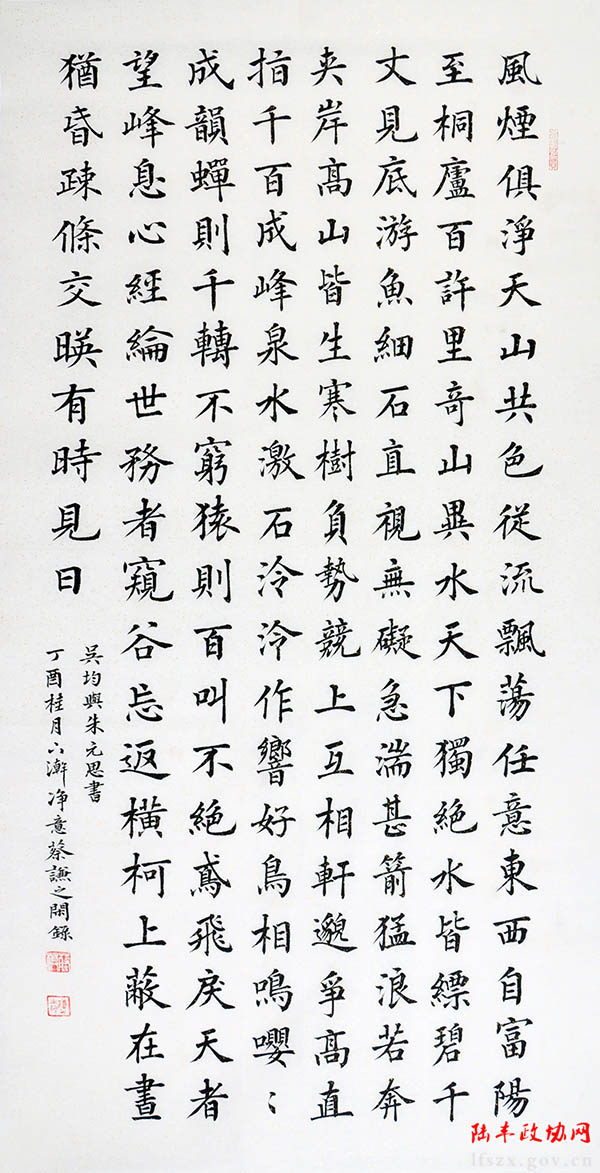 風煙俱淨天山共色從流飄蕩任意東西自富陽
至桐廬百許里奇山異水天下獨絕水皆縹碧千
丈見底游魚細石直視無礙急湍甚箭猛浪若奔
夾岸高山皆生寒樹負勢競上互相軒邈爭高直
指千百成峰泉水激石泠泠作響好鳥相鳴嚶〻
成韻蟬則千轉不窮猿則百叫不絕鳶飛戾天者
望峰息心經綸世務者窺谷忘返橫柯上蔽在晝
猶昏疎條交暎有時見日
吳均與朱元思書
丁酉桂月下澣净意蔡謙之閑錄
陆丰政协网
lfszx.gov.cn